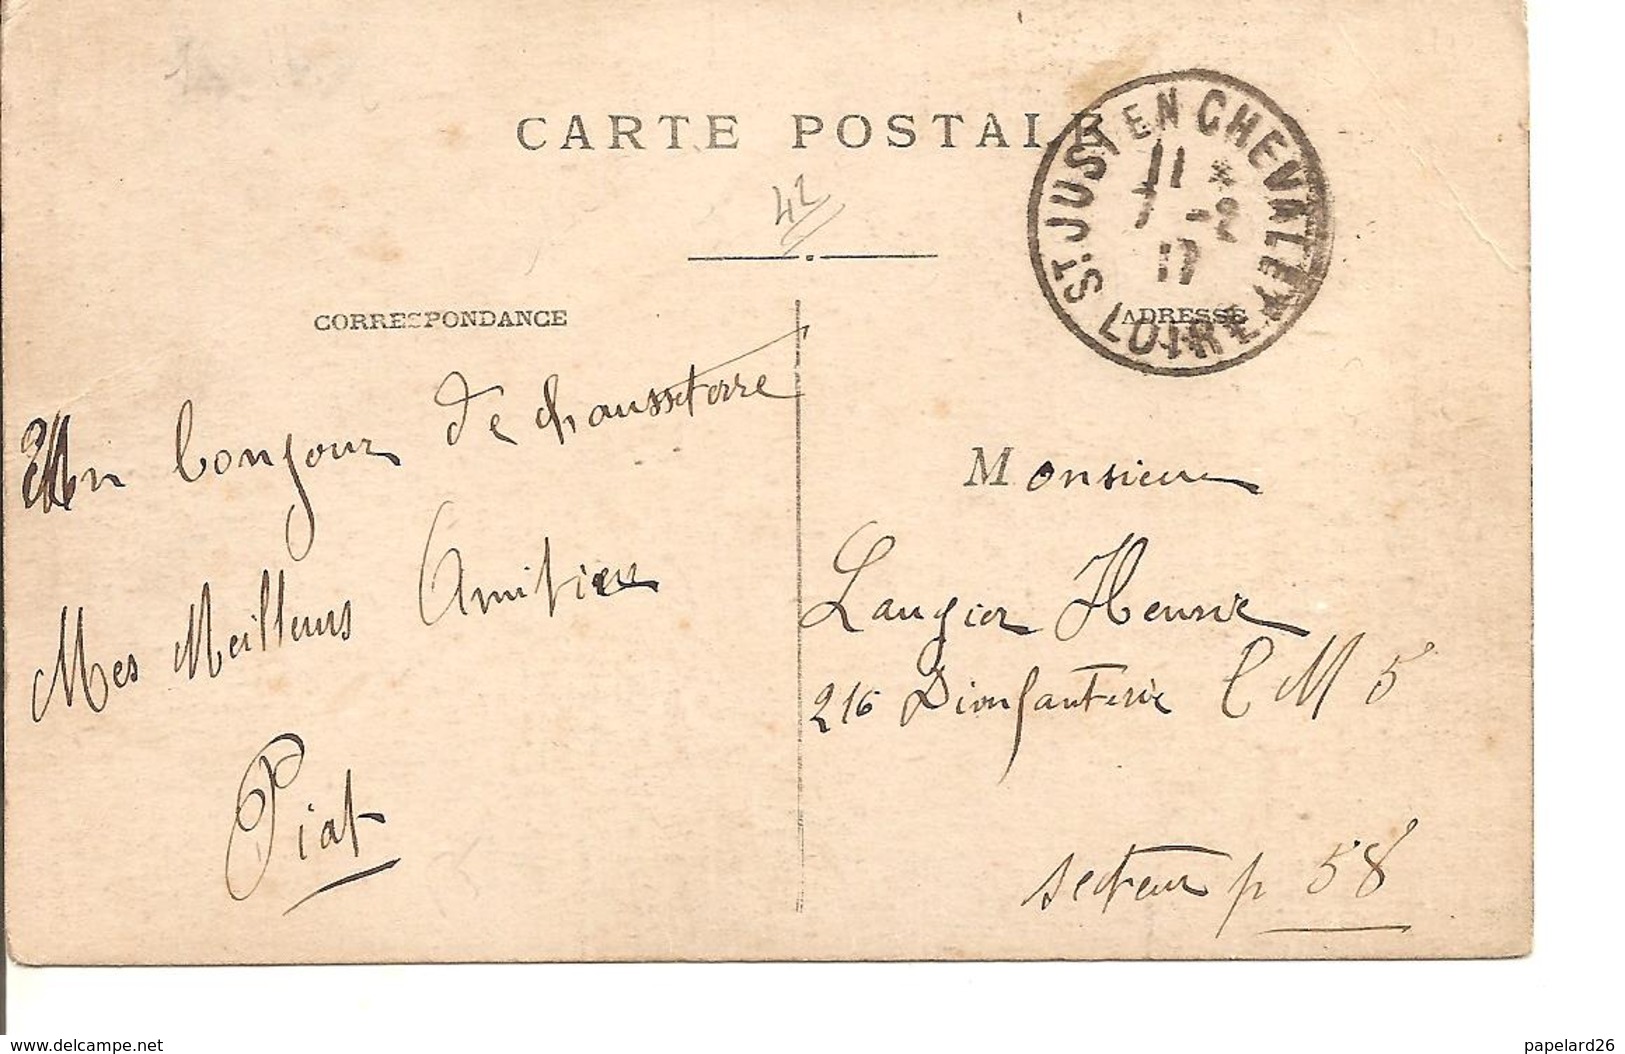 CARTE POSTALE
42
ST JUST EN CHEVALET
11 *
7 -2
17
LOIRE
CORRESPONDANCE
ADRESSE
Un bonjour de chausseterre
Mes Meilleurs Amitiés
Piat
Monsieur
Laugier Henrie
216 D'ionfanterie C M 5
secteur p 58
www.delcampe.net
papelard26